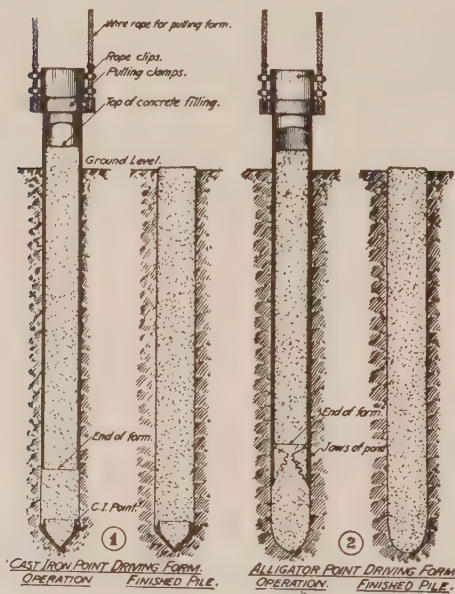 Wire rope for pulling form.
Rope clips.
Pulling clamps.
Top of concrete filling.
Ground Level.
End of form.
C.I. Point.
1
CAST IRON POINT DRIVING FORM.
OPERATION
FINISHED PILE.
End of form.
Jaws of point
2
ALLIGATOR POINT DRIVING FORM
OPERATION.
FINISHED PILE.